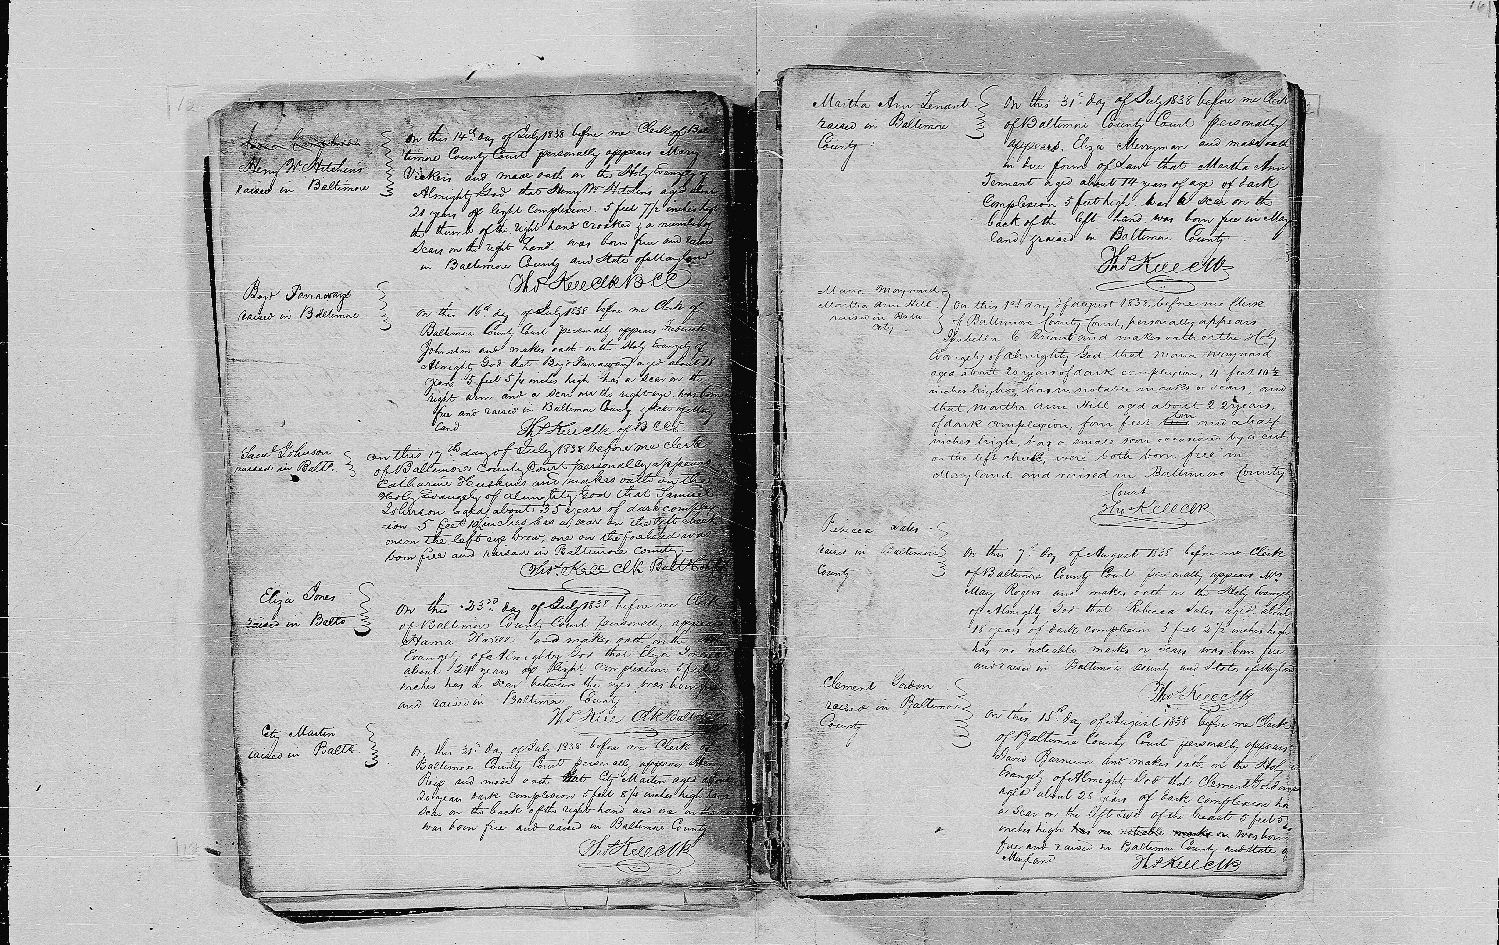 Henry W Hitchens
raised in Baltimore
On this 14th day of July 1838 before me Clerk of Bal
timore County Court personally appears Mary
Vickers and made oath on the Holy Evangely of
Almighty God that Henry W Hitchens aged about
21 years of light complexion 5 feet 7 1/2 inches high
the thumb of the right hand crooked & a number of
scars on the right hand was born free and raised
in Baltimore County and State of Maryland
Thos Kell Clk B C C
Benj Parraway
raised in Baltimore
On this 16th day of July 1838 before me Clerk of
Baltimore County Court personally appears
Johnston and makes oath on the Holy Evangely of
Almighty God that Benj Parraway aged about
years 5 feet 5 1/4 inches high has a scar on the
right arm and a scar on the right eye was born
free and raised in Baltimore County State of Mary
land
Thos Kell Clk of B C Ct
Saml Johnson
raised in Balto.
On this 17th day of July 1838 before me Clerk
of Baltimore County Court personally appears
Catharine Huskins and makes oath on the
Holy Evangely of Almighty God that Samuel
Johnson aged about 35 years of dark complex
ion 5 feet inches has a scar on the left cheek
one on the left eye brow, one on the forehead was
born free and raised in Baltimore County
Thos. Kell Clk Balt
Eliza Jones
raised in Balto
On this 23rd day of July 1838 before me Clerk
of Baltimore County Court personally appears
and makes oath on the
Evangely of Almighty God that Eliza Jones
about 24 years of light complexion 5 feet
inches has a scar between the eyes was born free
and raised in Baltimore County
Thos Kell Clk Balto
City Martin
raised in Balto
On this 31st day of July 1838 before me Clerk of
Baltimore County Court personally appears
and made oath that City Martin aged about
years dark complexion 5 feet 8 1/4 inches high has
scar on the back of the right hand and one on
was born free and raised in Baltimore County
Thos Kell Clk
Martha Ann Tennant
raised in Baltimore
County
On this 31st day of July 1838 before me Clerk
of Baltimore County Court personally
appears Eliza Merryman and made oath
in due form of Law that Martha Ann
Tennant aged about 14 years of age of dark
complexion 5 feet high has a scar on the
back of the left hand was born free in Mary
land, & raised in Baltimore County
Thos Kell Clk
Maria Maynard
Martha Ann Hill
raised in Balto
City
On this 1st day of August 1838, before me Clerk
of Baltimore County Court, personally appears
Isabella C Briant and makes oath on the Holy
Evangely of Almighty God that Maria Maynard
aged about 20 years of dark complexion, 4 feet 10 1/2
inches high, has no notable marks or scars, and
that Martha Ann Hill aged about 22 years,
of dark complexion, four feet ten and a half
inches high, has a small scar occasioned by a cut
on the left cheek, were both born free in
Maryland and raised in Baltimore County
Court
Thos Kell Clk
Rebecca Sales
raised in Baltimore
County
On this 7th day of August 1838 before me Clerk
of Baltimore County Court personally appears Mrs
Mary Rogers and makes oath on the Holy Evangely
of Almighty God that Rebecca Sales aged about
18 years of dark complexion 5 feet 2 1/2 inches high
has no noteable marks or scars was born free
and raised in Baltimore County and State of Maryland
Thos Kell Clk
Clement Gordon
raised in Baltimore
County
On this 15th day of August 1838 before me Clerk
of Baltimore County Court personally appears
David Barnum and makes oath on the Holy
Evangely of Almighty God that Clement Gordon
aged about 25 years of dark complexion has
a scar on the left side of the breast 5 feet 5
inches high has no noteable marks or was born
free and raised in Baltimore County and State of
Maryland
Thos Kell Clk